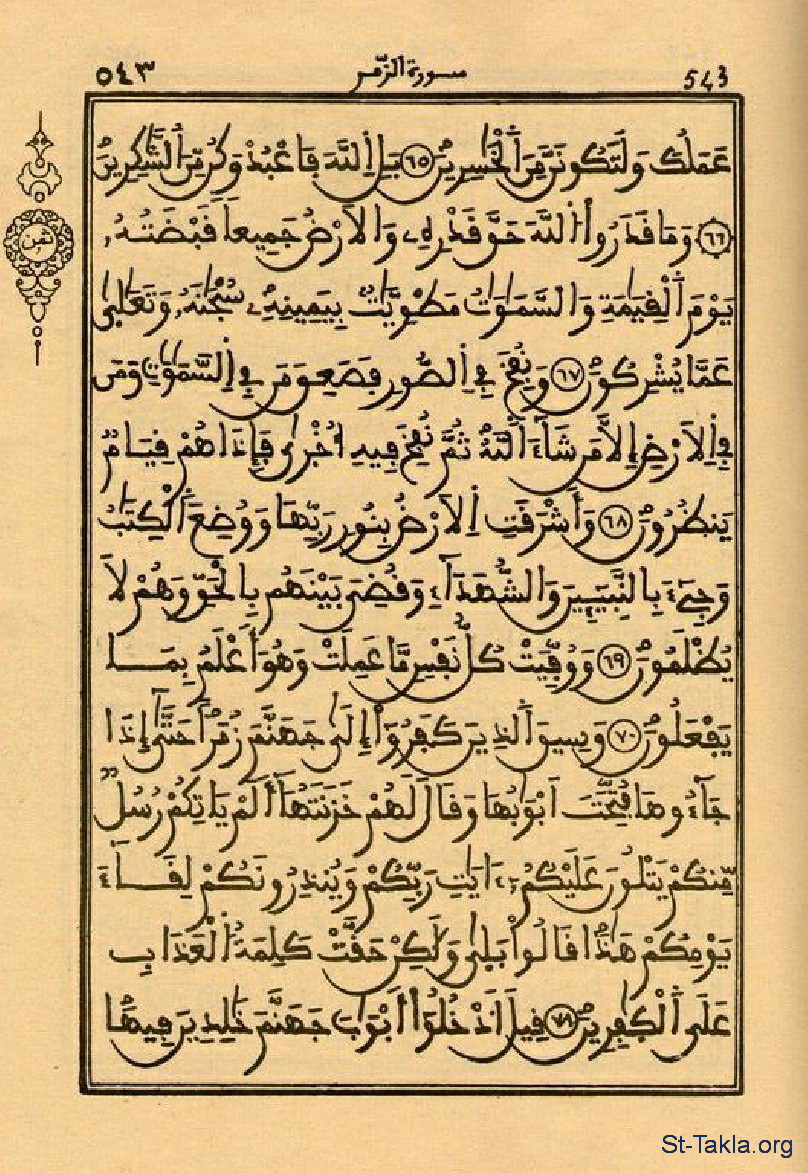 ٥٤٣ سورة الزّمر 543
عَمَلُكَ وَلَتَكُونَنَّ مِنَ ٱلْخَٰسِرِينَ ٦٥ بَلِ ٱللَّهَ فَاعْبُدْ وَكُن مِّنَ ٱلشَّٰكِرِينَ
ثمن
٦٦ وَمَا قَدَرُواْ ٱللَّهَ حَقَّ قَدْرِهِۦ وَالَارْضُ جَمِيعاً قَبْضَتُهُۥ
يَوْمَ ٱلْقِيَٰمَةِ وَالسَّمَٰوَٰتُ مَطْوِيَّٰتٌۢ بِيَمِينِهِۦ سُبْحَٰنَهُۥ وَتَعَٰلَىٰ
عَمَّا يُشْرِكُونَ ٦٧ وَنُفِخَ فِے اِ۬لصُّورِ فَصَعِقَ مَن فِے اِ۬لسَّمَٰوَٰتِ وَمَن
فِے اِ۬لَارْضِ إِلَّا مَن شَآءَ ٱللَّهُ ثُمَّ نُفِخَ فِيهِ أُخْر۪ىٰ فَإِذَا هُمْ قِيَامٌ
يَنظُرُونَ ٦٨ وَأَشْرَقَتِ اِ۬لَارْضُ بِنُورِ رَبِّهَا وَوُضِعَ ٱلْكِتَٰبُ
وَجِےٓءَ بِالنَّبِيٓـِٕينَ وَالشُّهَدَآءِ وَقُضِىَ بَيْنَهُم بِالْحَقِّ وَهُمْ لَا
يُظْلَمُونَ ٦٩ وَوُفِّيَتْ كُلُّ نَفْسٍ مَّا عَمِلَتْ وَهُوَ أَعْلَمُ بِمَا
يَفْعَلُونَ ٧٠ وَسِيقَ ٱلذِينَ كَفَرُوٓاْ إِلَىٰ جَهَنَّمَ زُمَراً حَتَّىٰٓ إِذَا
جَآءُوهَا فُتِّحَتَ اَبْوَٰبُهَا وَقَالَ لَهُمْ خَزَنَتُهَآ أَلَمْ يَاتِكُمْ رُسُلٌ
مِّنكُمْ يَتْلُونَ عَلَيْكُمُۥٓ ءَايَٰتِ رَبِّكُمْ وَيُنذِرُونَكُمْ لِقَآءَ
يَوْمِكُمْ هَٰذَا قَالُواْ بَلَىٰ وَلَٰكِنْ حَقَّتْ كَلِمَةُ ٱلْعَذَابِ
عَلَى ٱلْكٰ۪فِرِينَ ٧١ قِيلَ اَ۟دْخُلُوٓاْ أَبْوَٰبَ جَهَنَّمَ خَٰلِدِينَ فِيهَا
St-Takla.org